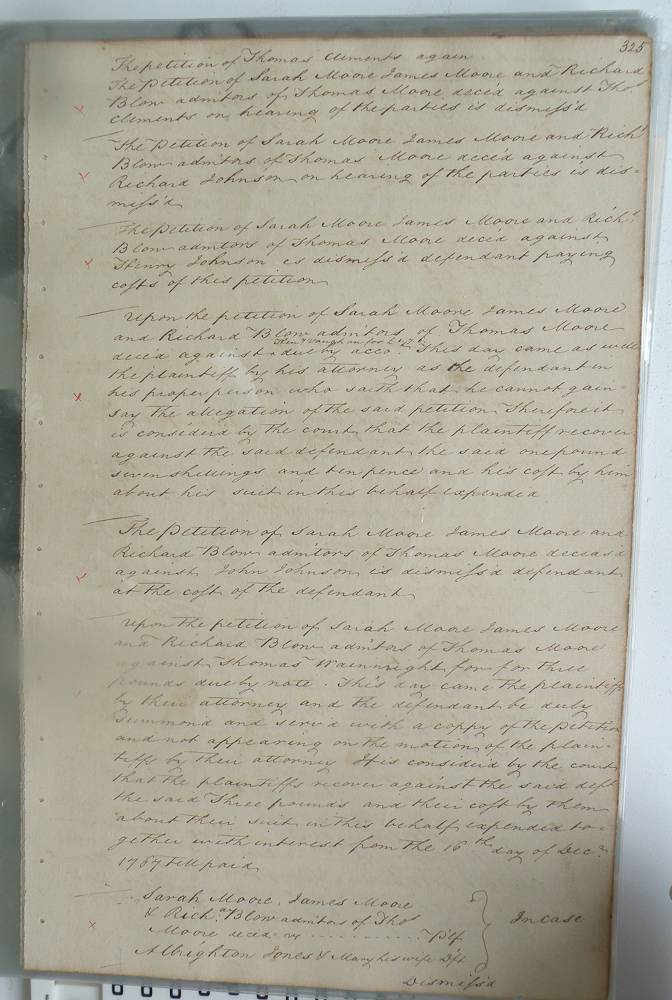 325
The petition of Thomas Clements again
The Petition of Sarah Moore James Moore and Richard
Blow admitors of Thomas Moore deced against Thos
Clements on hearing of the parties is dismiss'd
The Petition of Sarah Moore James Moore and Richd
Blow admitors of Thomas Moore deced against
Richard Johnson on hearing of the parties is dis=
miss'd
The Petition of Sarah Moore James Moore and Richd
Blow admitors of Thomas Moore deced against
Henry Johnson is dismiss'd defendant paying
costs of this petition
Upon the petition of Sarah Moore James Moore
and Richard Blow admitors of Thomas Moore
Vaughan for
deced against due by acco This day came as well
the plaintiff by his attorney as the defendant in
his proper person who saith that he cannot gain=
say the allegation of the said petition Therefore it
is consider'd by the court that the plaintiff recover
against the said defendant the said one pound
seven shillings and ten pence and his cost by him
about his suit in this behalf expended
The Petition of Sarah Moore James Moore and
Richard Blow admitors of Thomas Moore deceas'd
against John Johnson is dismiss'd defendant
at the cost of the defendant
Upon the petition of Sarah Moore James Moore
and Richard Blow admitors of Thomas Moore
against Thomas Wainwright for for three
pounds due by note. This day came the plaintiffs
by their attorney and the defendant be duly
Summond and serv'd with a coppy of the Petition
and not appearing on the motion of the plain=
tiffs by their attorney It is consider'd by the court
that the plaintiffs recover against the said deft
the said Three pounds and their cost by them
about their suit in this behalf expended to=
gether with interest from the 16th day of Decr
1767 till paid
Sarah Moore, James Moore
& Richd Blow admitors of Thos
Moore deced Plf
In case
Albrighton Jones & Mary his wife Dft
Dismiss'd